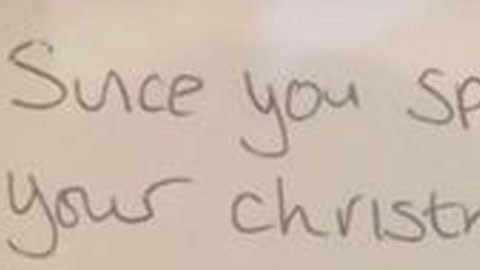 Since you sp
your christ